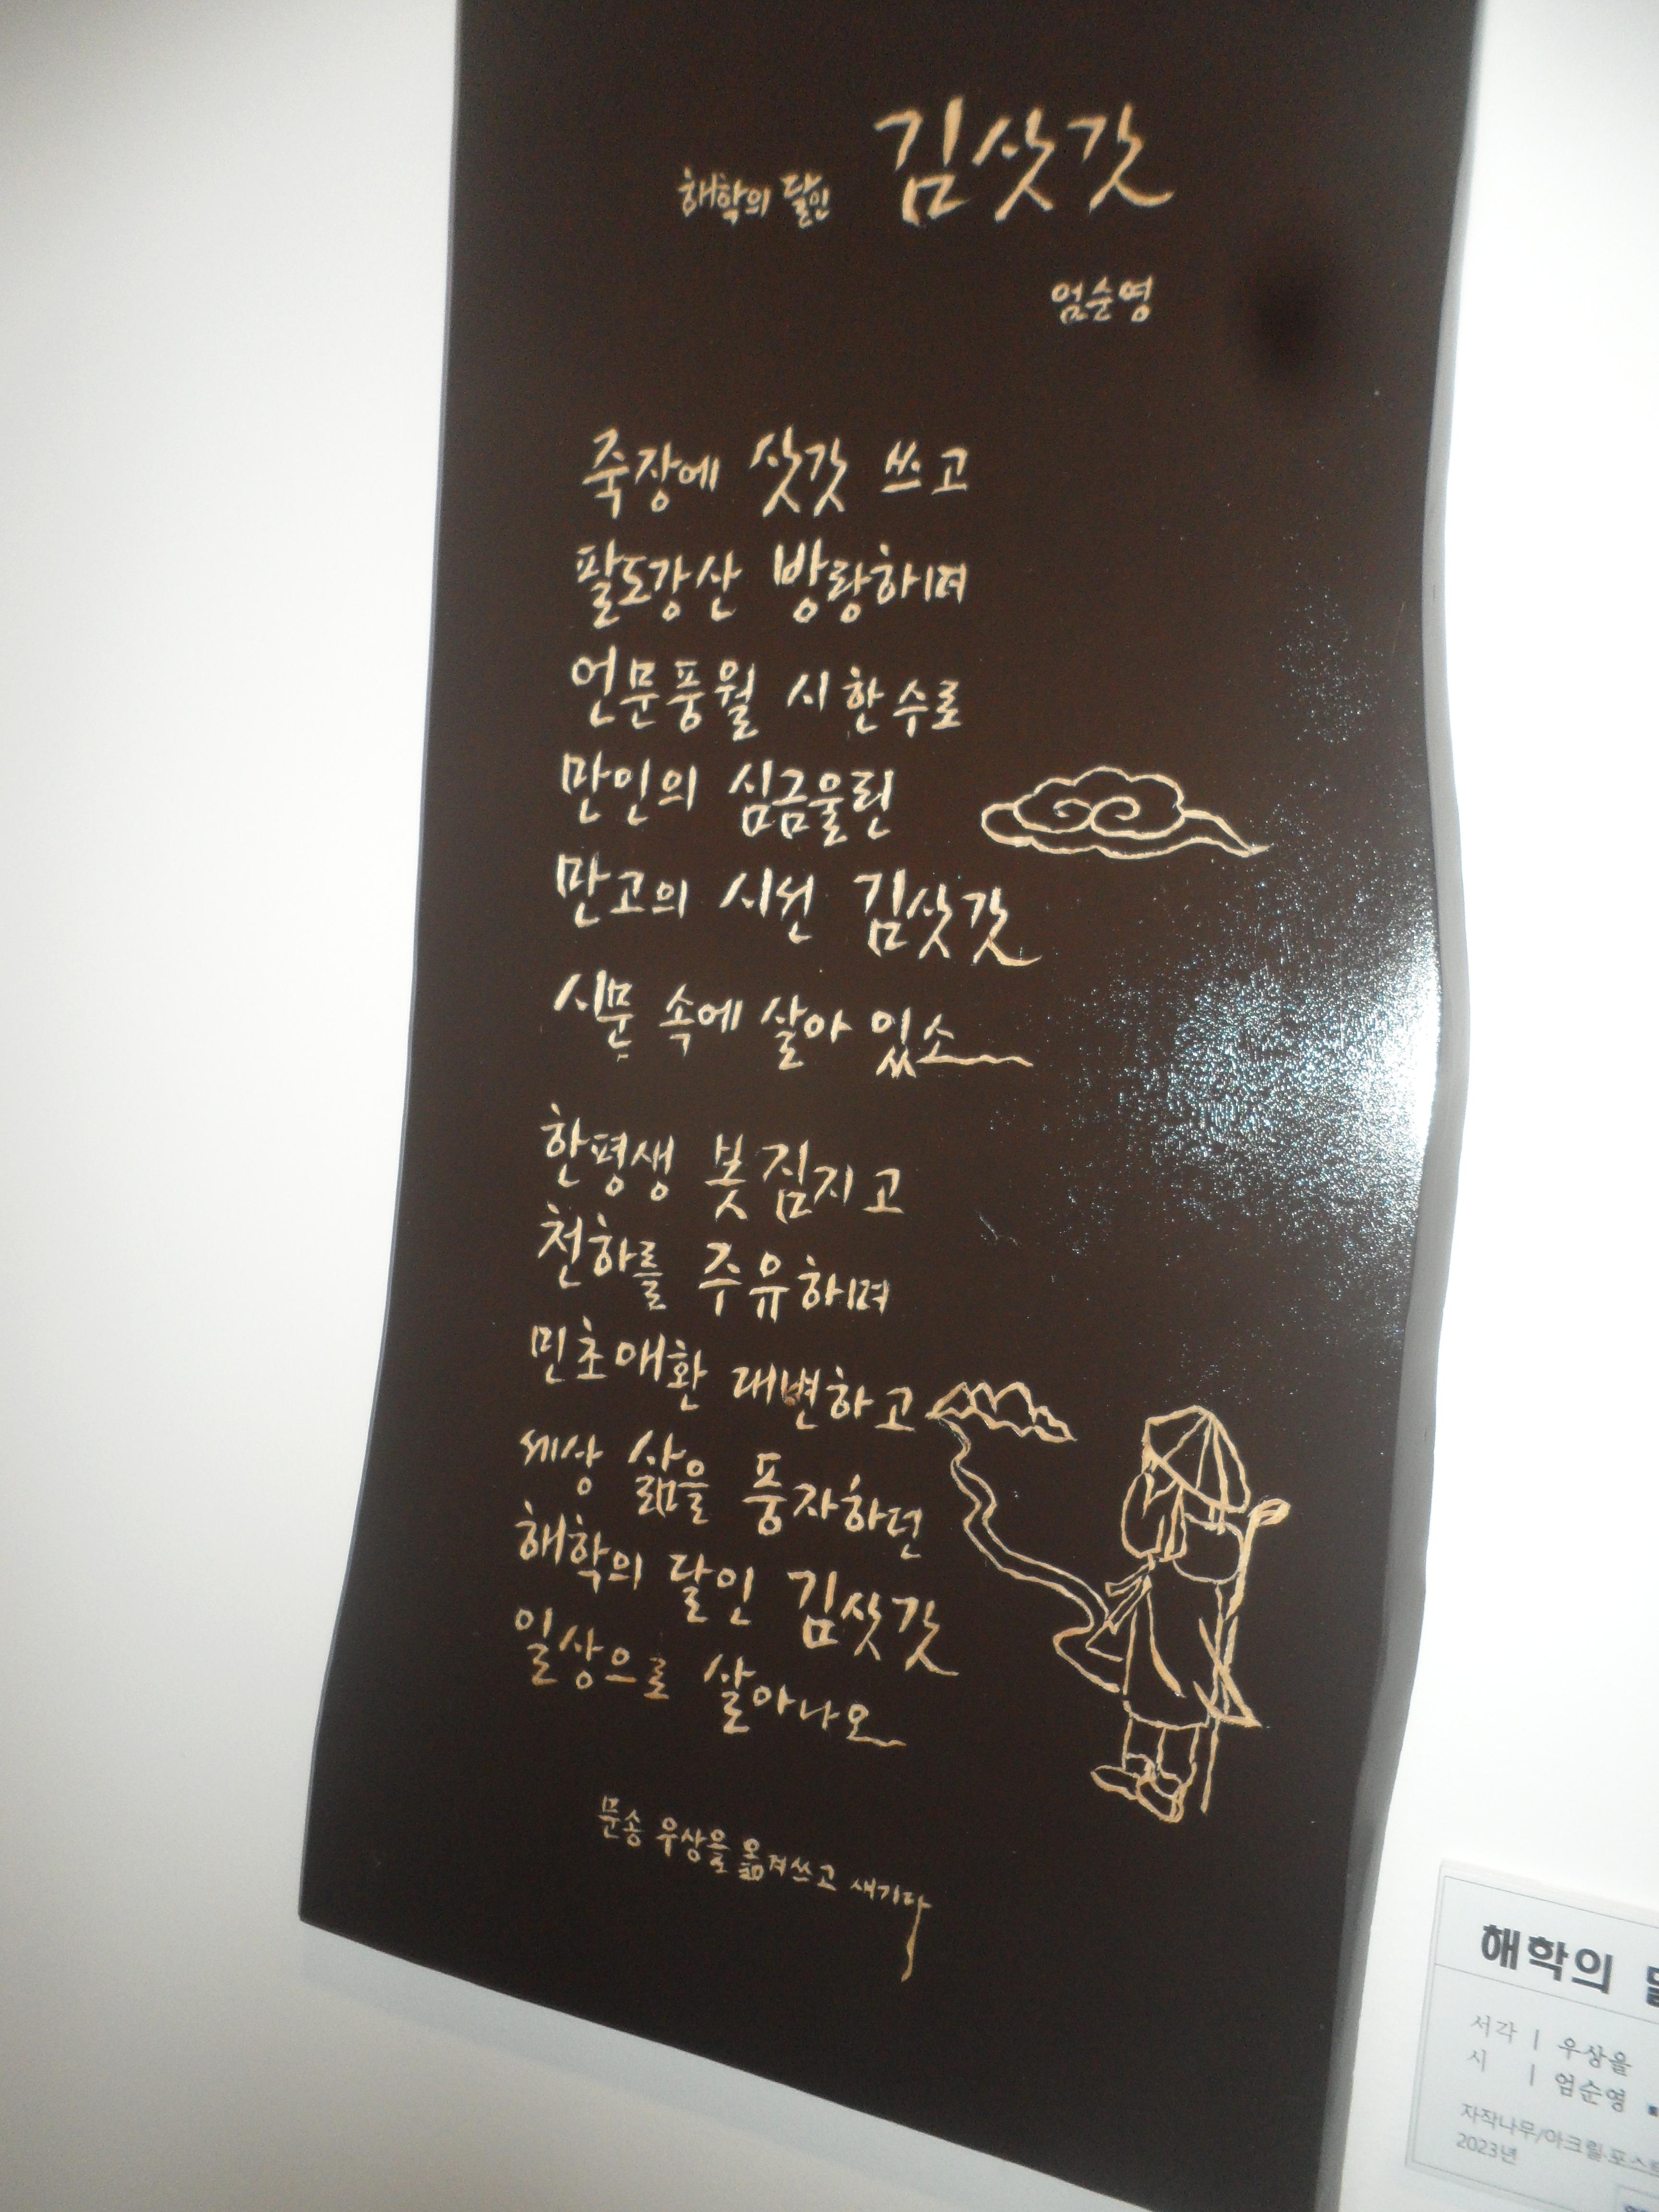 해학의 달인 김삿갓
엄순영
죽장에 삿갓 쓰고
팔도강산 방랑하며
언문풍월 시 한 수로
만인의 심금울린
만고의 시선 김삿갓
시문 속에 살아 있소
한평생 봇짐지고
천하를 주유하며
민초애환 대변하고
세상 삶을 풍자하던
해학의 달인 김삿갓
일상으로 살아나오
문송 우상을 옮겨쓰고 새기다
해학의
서각 | 우상을
시 | 엄순영
자작나무/아크릴·포스트
2023년